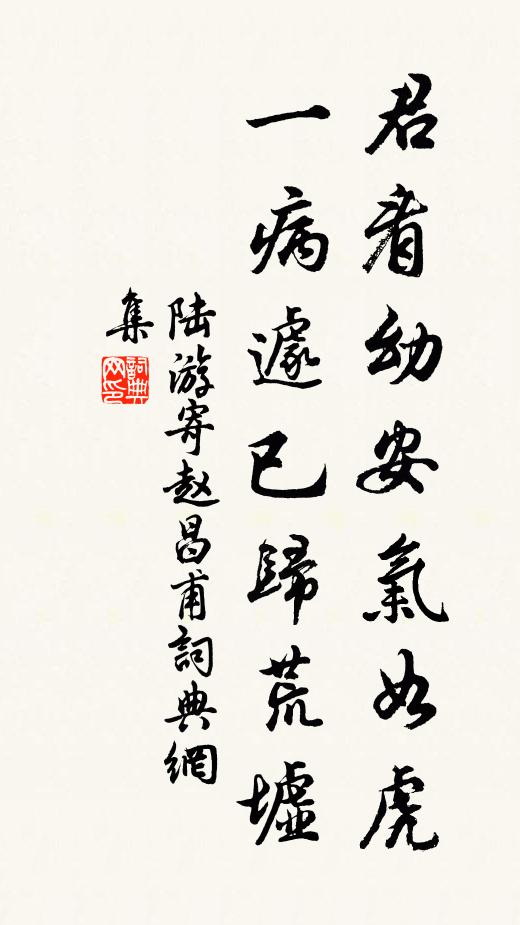 君看幼安氣如虎
一病遽已歸荒墟
陆游寄赵昌甫詞典網
集
詞典网印